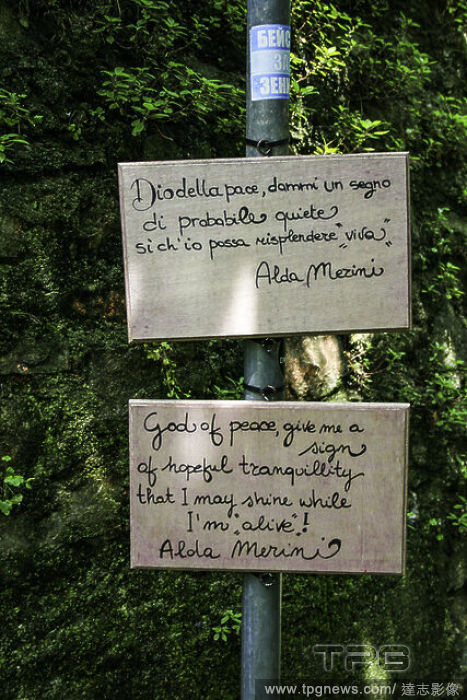 БЕЙС
ЗА
ЗЕНИ
Dio della pace, dammi un segno
di probabile quiete
sì ch'io possa risplendere "viva"
Alda Merini
God of peace, give me a
sign
of hopeful tranquillity
that I may shine while
I'm "alive"!
Alda Merini
TPG
www.tpgnews.com/ 達志影像